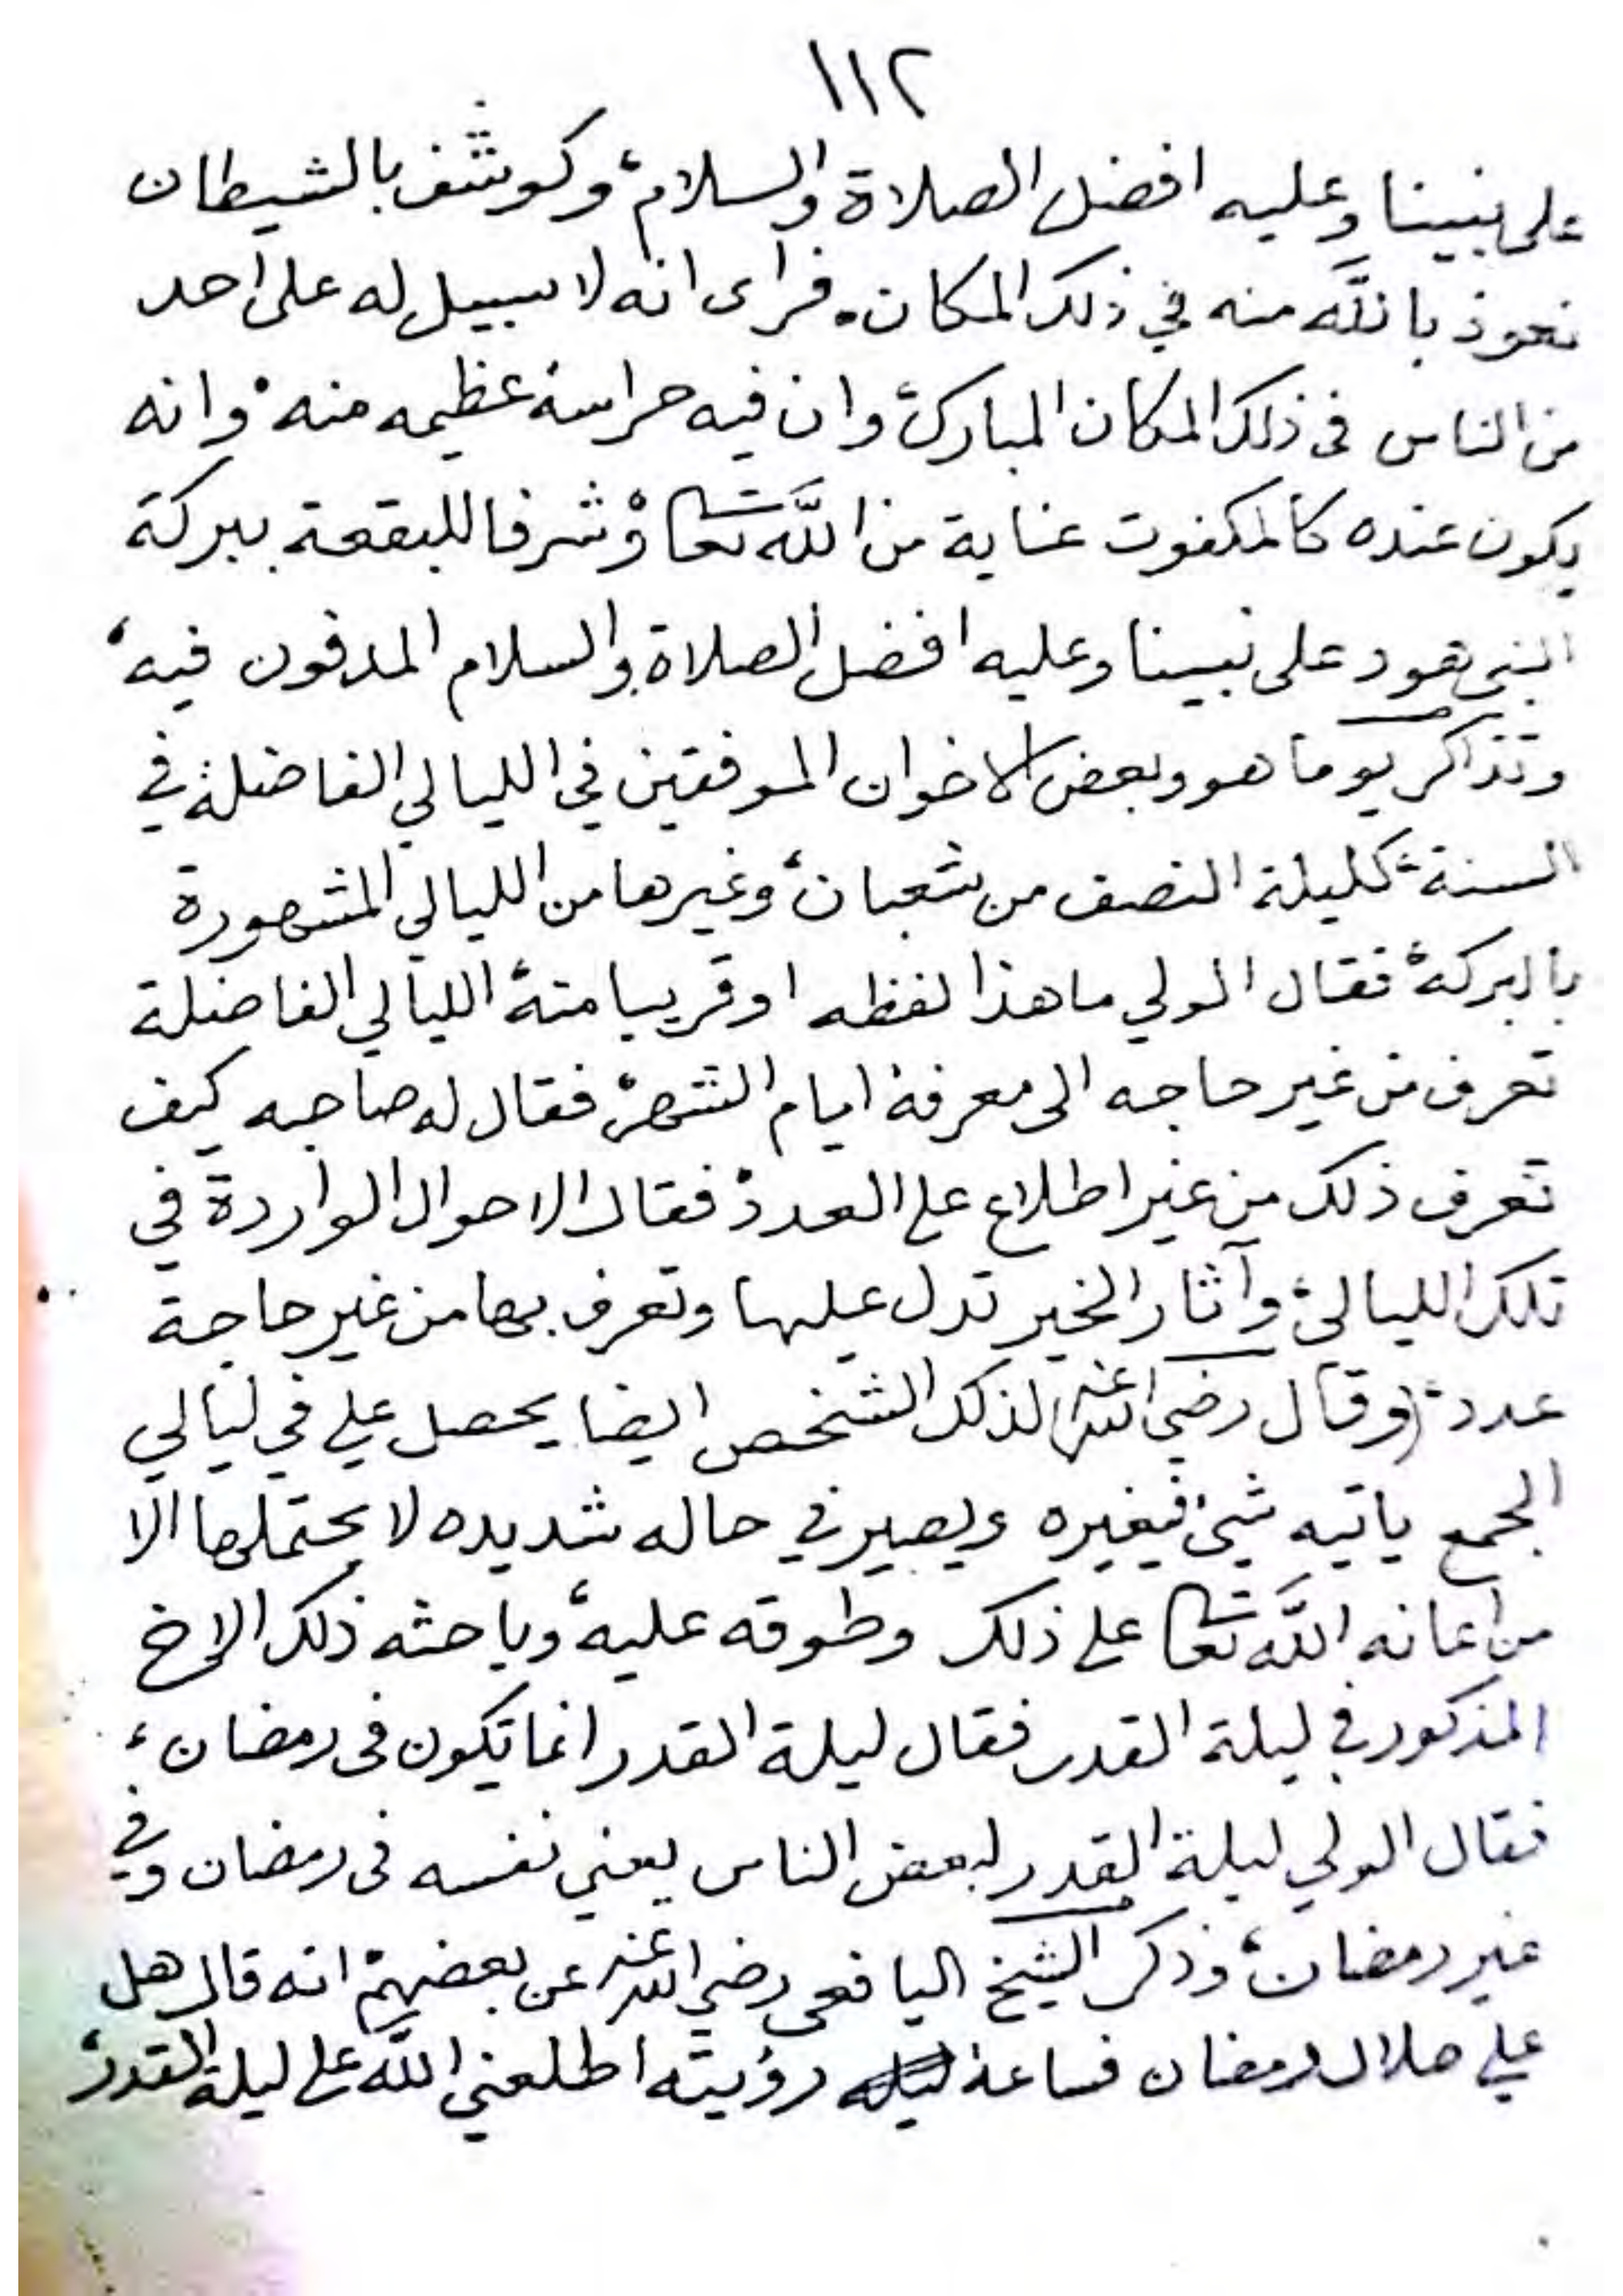 ١١٢
على نبينا وعليه افضل الصلاة والسلام، وكوشف بالشيطان
نعوذ بالله منه في ذلك المكان. فراى انه لا سبيل له على احد
من الناس فى ذلك المكان المبارك، وان فيه حراسة عظيمه منه، وانه
يكون عنده كالمكفوت عناية من الله تعا وشرفا للبقعة ببركة
النبي هود على نبينا وعليه افضل الصلاة والسلام المدفون فيه،
وتذاكر يوما هو وبعض الاخوان الموفقين في الليالي الفاضلة في
السنة، كليلة النصف من شعبان، وغيرها من الليالي المشهورة
بالبركة، فقال الولي ما هذا لفظه او قريبا منه، الليالي الفاضلة
تعرف من غير حاجه الى معرفة ايام الشهر، فقال له صاحبه كيف
تعرف ذلك من غير اطلاع على العدد، فقال الاحوال الواردة في
تلك الليالي، وآثار الخير تدل عليها وتعرف بها من غير حاجة
عدد، (وقال رضي الله عنه) لذلك الشخص ايضا يحصل علي في ليالي
الجمع ياتيه شيئ فيغيره ويصير في حاله شديده لا يحتملها الا
من اعانه الله تعا على ذلك وطوقه عليه، وباحثه ذلك الاخ
المذكور في ليلة القدر فقال ليلة القدر انما تكون فى رمضان،
فقال الولي ليلة القدر لبعض الناس يعني نفسه فى رمضان وفي
غير رمضان، وذكر الشيخ اليافعى رضي الله عنه عن بعضهم، انه قال هل
علي هلال رمضان فساعة رؤيته اطلعني الله على ليلة القدر،